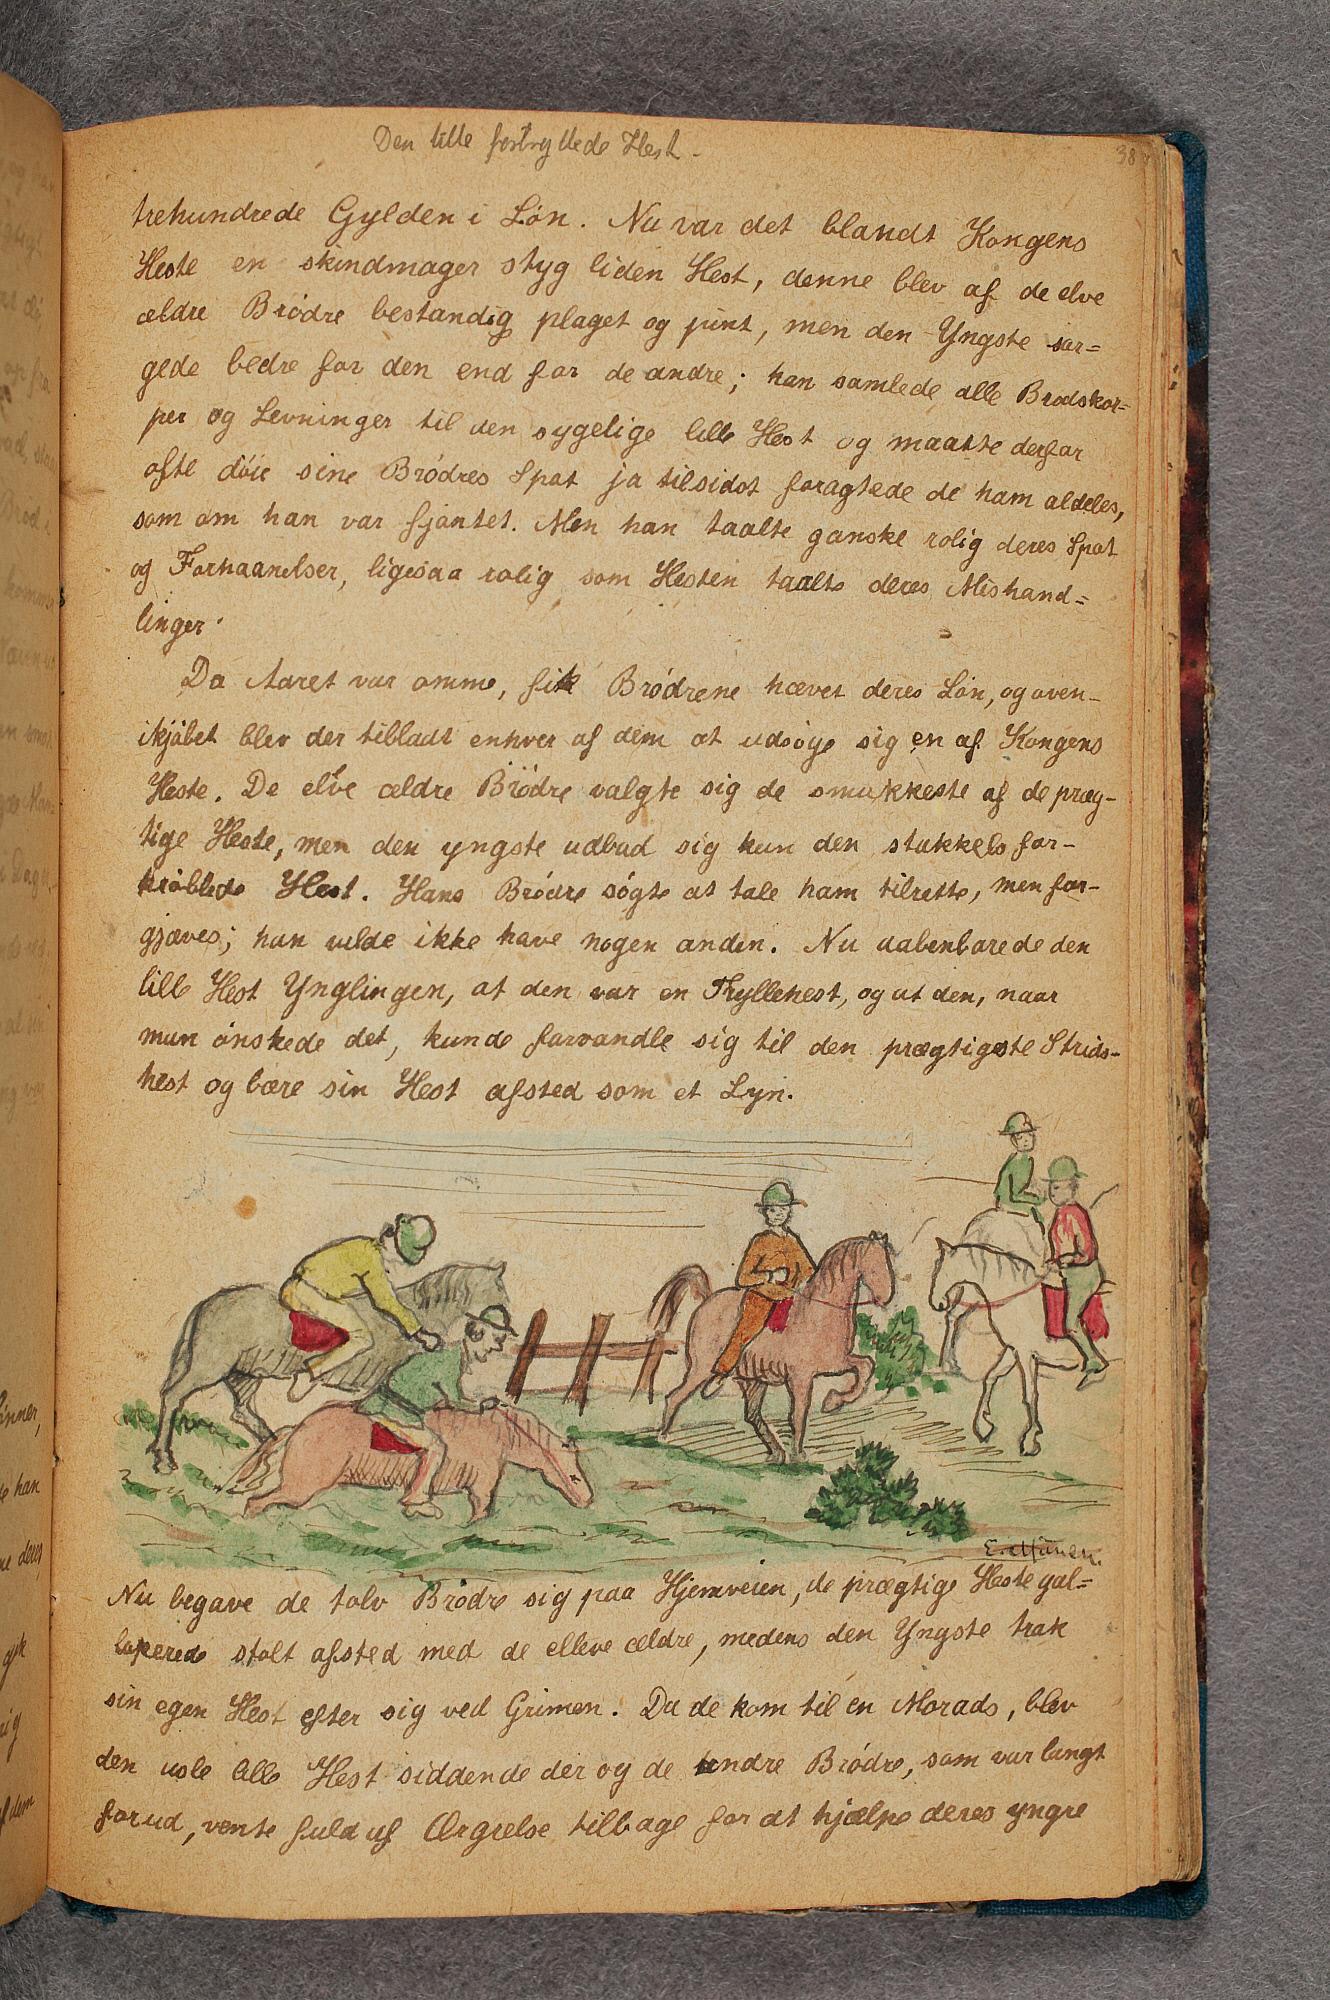 Den lille fortryllede Hest.
38
trehundrede Gylden i Løn. Nu var det blandt Kongens
Heste en skindmager styg liden Hest, denne blev af de elve
ældre Brödre bestandig plaget og pint, men den Yngste sør=
gede bedre for den end for de andre; han samlede alle Brødskor=
per og Levninger til den sygelige lille Hest og maatte derfor
ofte döie sine Brödres Spot ja tilsidst foragtede de ham aldeles,
som om han var fjantet. Men han taalte ganske rolig deres Spot
og Forhaanelser, ligesaa rolig som Hesten taalte deres Mishand=
linger.
Da Aaret var omme, fik Brödrene hævet deres Løn, og oven-
ikjöbet blev der tilladt enhver af dem at udsöge sig en af Kongens
Heste. De elve ældre Brödre valgte sig de smukkeste af de præg-
tige Heste, men den yngste udbad sig kun den stakkels for-
kröblede Hest. Hans Brödre sögte at tale ham tilrette, men for-
gjæves; han vilde ikke have nogen anden. Nu aabenbarede den
lille Hest Ynglingen, at den var en Tryllehest, og at den, naar
man önskede det, kunde forvandle sig til den prægtigste Strids-
hest og bære sin Hest afsted som et Lyn.
E. Munch.
Nu begave de tolv Brödre sig paa Hjemveien, de prægtige Heste gal=
loperede stolt afsted med de elleve ældre, medens den Yngste trak
sin egen Hest efter sig ved Grimen. Da de kom til en Morads, blev
den usle lille Hest siddende der og de andre Brödre, som var langt
forud, vente fuld af Ærgrelse tilbage for at hjælpe deres yngre